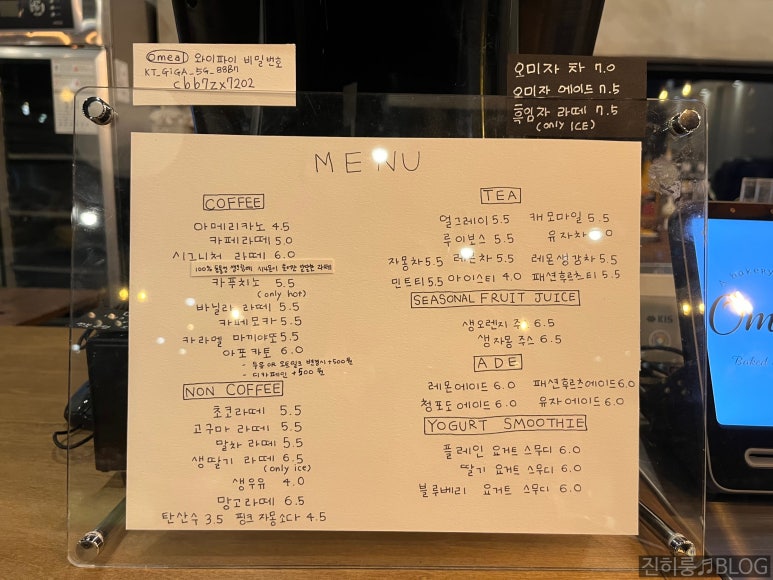 Omeal 와이파이 비밀번호
KT_GiGA_5G_88B7
cbb7zx7202
오미자 차 7.0
오미자 에이드 7.5
흑임자 라떼 7.5
(only ICE)
MENU
COFFEE
아메리카노 4.5
카페라떼 5.0
시그니처 라떼 6.0
100%
카푸치노 5.5
(only hot)
바닐라 라떼 5.5
카페모카 5.5
카라멜 마끼아또 5.5
아포카토 6.0
- 두유 OR 오트밀크 변경시 +500원
- 디카페인 +500원
NON COFFEE
초코라떼 5.5
고구마 라떼 5.5
말차 라떼 5.5
생딸기 라떼 6.5
(only ice)
생우유 4.0
망고라떼 6.5
탄산수 3.5 핑크 자몽소다 4.5
TEA
얼그레이 5.5 캐모마일 5.5
루이보스 5.5 유자차
자몽차 5.5 레몬차 5.5 레몬생강차 5.5
민트티 5.5 아이스티 4.0 패션후르츠티 5.5
SEASONAL FRUIT JUICE
생오렌지 주스 6.5
생자몽 주스 6.5
ADE
레몬에이드 6.0 패션후르츠에이드 6.0
청포도 에이드 6.0 유자에이드 6.0
YOGURT SMOOTHIE
플레인 요거트 스무디 6.0
딸기 요거트 스무디 6.0
블루베리 요거트 스무디 6.0
KIS
a bakery
Om
Baked
진히룽♬BLOG